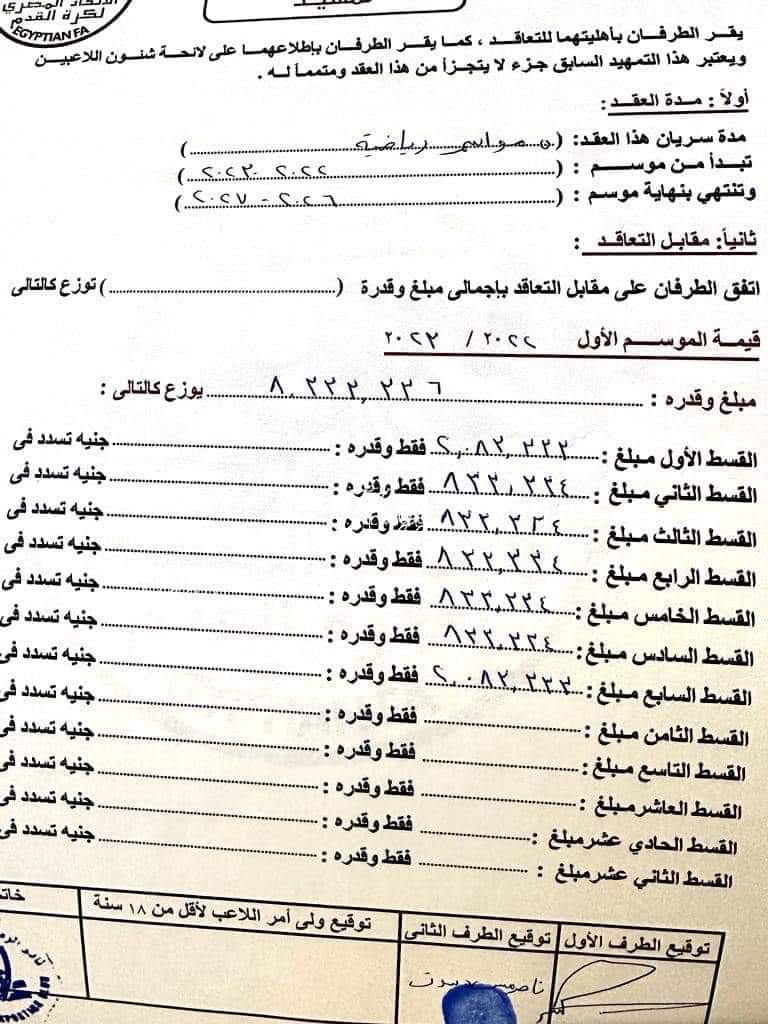 الاتحاد المصري
لكرة القدم
EGYPTIAN FA
تمهيد
يقر الطرفان بأهليتهما للتعاقد ، كما يقر الطرفان بإطلاعهما على لائحة شئون اللاعبين
ويعتبر هذا التمهيد السابق جزء لا يتجزأ من هذا العقد ومتمماً له .
أولاً : مدة العقد :
مدة سريان هذا العقد: (٥ مواسم رياضية)
تبدأ من موسم : (٢٠٢٢ - ٢٠٢٣)
وتنتهي بنهاية موسم : (٢٠٢٦ - ٢٠٢٧)
ثانياً: مقابل التعاقد :
اتفق الطرفان على مقابل التعاقد بإجمالى مبلغ وقدرة (..........) توزع كالتالى
قيمة الموسم الأول ٢٠٢٢ / ٢٠٢٣
مبلغ وقدره : ٨,٣٣٣,٣٣٦ يوزع كالتالى :
القسط الأول مبلغ : ٢,٠٨٣,٣٣٣ فقط وقدره : .......... جنيه تسدد فى
القسط الثاني مبلغ : ٨٣٣,٣٣٤ فقط وقدره : .......... جنيه تسدد فى
القسط الثالث مبلغ : ٨٣٣,٣٣٤ فقط وقدره : .......... جنيه تسدد فى
القسط الرابع مبلغ : ٨٣٣,٣٣٤ فقط وقدره : .......... جنيه تسدد فى
القسط الخامس مبلغ : ٨٣٣,٣٣٤ فقط وقدره : .......... جنيه تسدد فى
القسط السادس مبلغ : ٨٣٣,٣٣٤ فقط وقدره : .......... جنيه تسدد فى
القسط السابع مبلغ : ٢,٠٨٣,٣٣٣ فقط وقدره : .......... جنيه تسدد فى
القسط الثامن مبلغ : .......... فقط وقدره : .......... جنيه تسدد فى
القسط التاسع مبلغ : .......... فقط وقدره : .......... جنيه تسدد فى
القسط العاشر مبلغ : .......... فقط وقدره : .......... جنيه تسدد فى
القسط الحادي عشر مبلغ : .......... فقط وقدره : .......... جنيه تسدد فى
القسط الثاني عشر مبلغ : .......... فقط وقدره : .......... جنيه تسدد فى
توقيع الطرف الأول توقيع الطرف الثانى توقيع ولى أمر اللاعب لأقل من ١٨ سنة